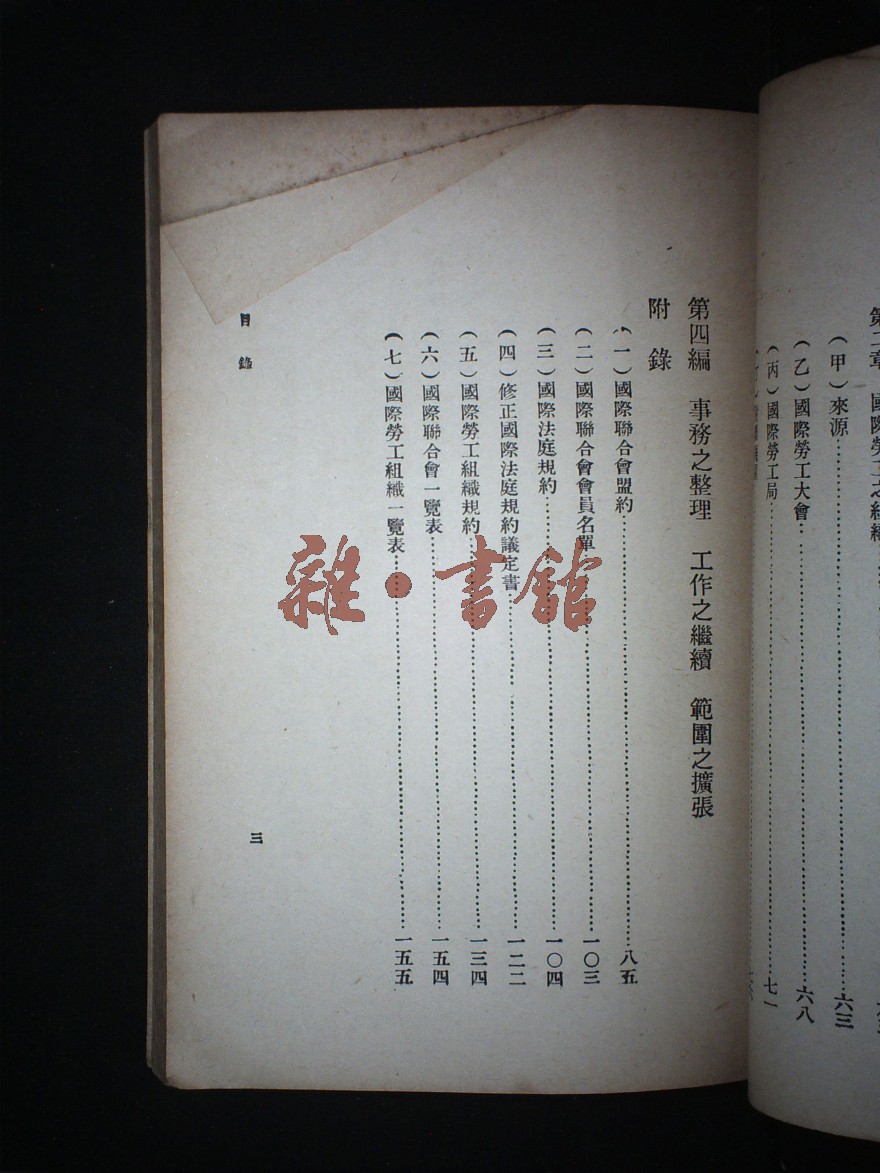 (甲)來源……六三
(乙)國際勞工大會……六八
(丙)國際勞工局……七一
第四編 事務之整理 工作之繼續 範圍之擴張
附錄
(一)國際聯合會盟約……八五
(二)國際聯合會會員名單……一〇三
(三)國際法庭規約……一〇四
(四)修正國際法庭規約議定書……一二二
(五)國際勞工組織規約……一三四
(六)國際聯合會一覽表……一五四
(七)國際勞工組織一覽表……一五五
目錄
三
雜·書館